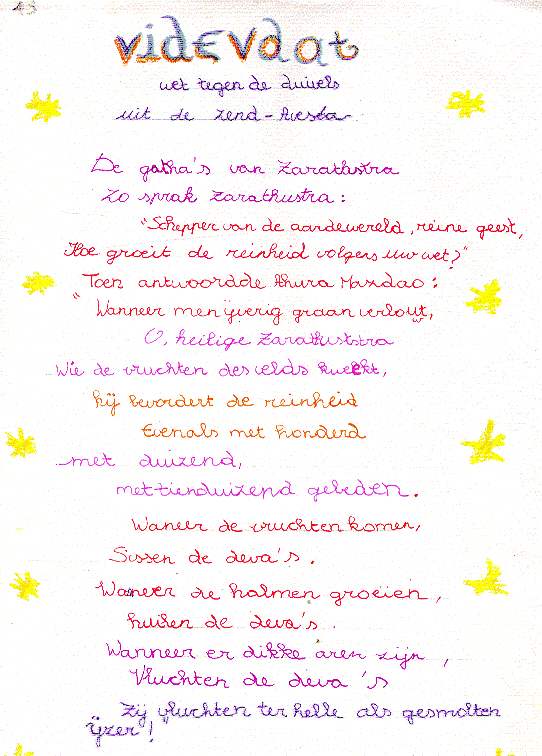 13
vidEVdat
wet tegen de duivels
uit de zend-Avesta
De gatha's van Zarathstra
Zo sprak Zarathustra:
"Schepper van de aardewereld, reine geest,
Hoe groeit de reinheid volgens uw wet?"
Toen antwoordde Ahura Mazdao:
"Wanneer men ijverig graan verbouwt,
O, heilige Zarathustra
Wie de vruchten des velds kweekt,
hij bevordert de reinheid
Evenals met honderd
met duizend,
met tienduizend gebeden.
Waneer de vruchten komen,
Sissen de deva's.
Waneer de halmen groeien,
huilen de deva's.
Wanneer er dikke aren zijn,
Vluchten de deva's
Zij vluchten ter helle als gesmolten
ijzer!"